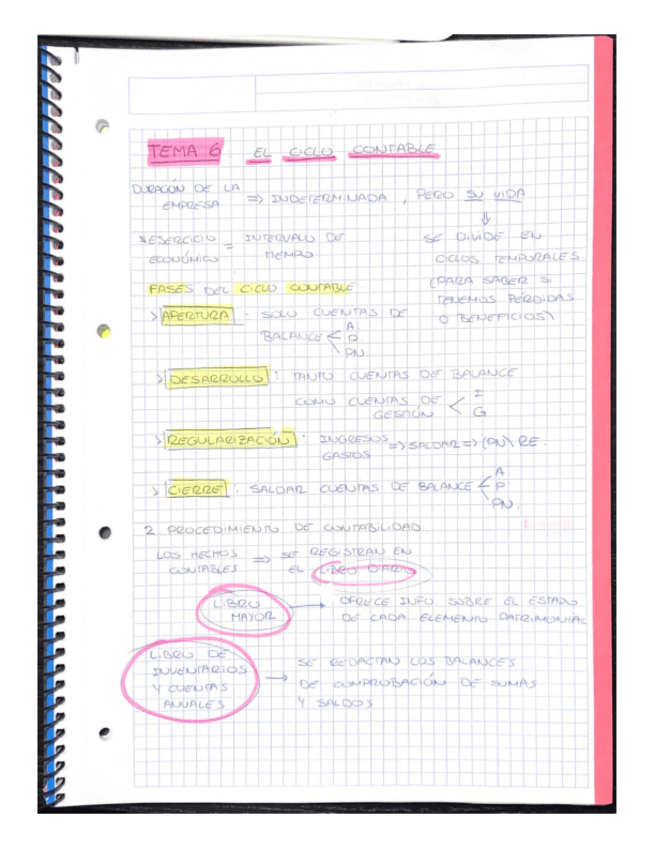 TEMA 6 EL CICLO CONTABLE
DURACIÓN DE LA
EMPRESA => INDETERMINADA, PERO SU VIDA
⇓
SE DIVIDE EN
CICLOS TEMPORALES.
(PARA SABER SI
TENEMOS PÉRDIDAS
O BENEFICIOS)
EJERCICIO = INTERVALO DE
ECONÓMICO TIEMPO
FASES DEL CICLO CONTABLE.
> APERTURA: SOLO CUENTAS DE
BALANCE < A.
P.
PN
> DESARROLLO: TANTO CUENTAS DE BALANCE
COMO CUENTAS DE
GESTIÓN < I
G
> REGULARIZACIÓN: INGRESOS
GASTOS => SALDAR => (PN) RE.
> CIERRE: SALDAR CUENTAS DE BALANCE < A
P
PN.
2. PROCEDIMIENTO DE CONTABILIDAD.
LOS HECHOS => SE REGISTRAN EN
CONTABLES EL LIBRO DIARIO
LIBRO → OFRECE INFO SOBRE EL ESTADO
MAYOR DE CADA ELEMENTO PATRIMONIAL
LIBRO DE
INVENTARIOS
Y CUENTAS
ANUALES → SE REDACTAN LOS BALANCES
DE COMPROBACIÓN DE SUMAS
Y SALDOS